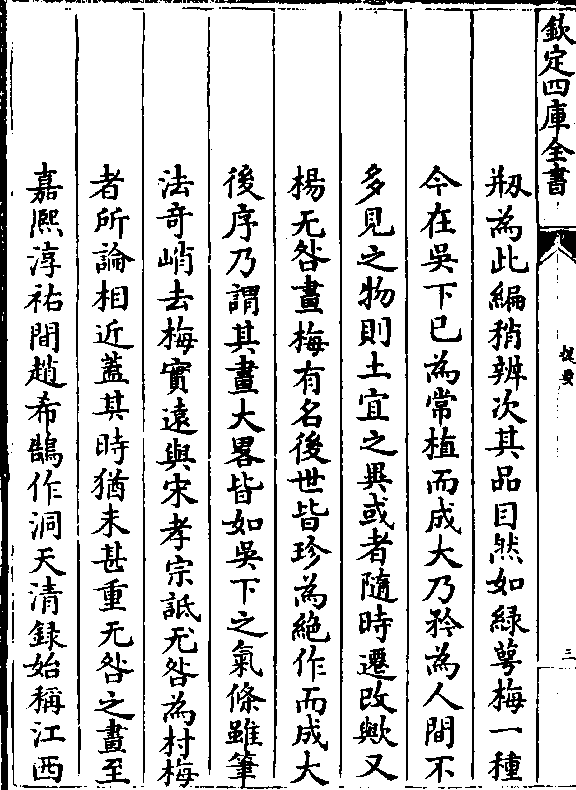 欽定四庫全書
提要
三
剏為此編稍辨次其品目然如緑萼梅一種
今在吳下已為常植而成大乃矜為人間不
多見之物則土宜之異或者隨時遷改歟又
楊无咎畫梅有名後世皆珍為絶作而成大
後序乃謂其畫大畧皆如吳下之氣條雖筆
法奇峭去梅實遠與宋孝宗詆无咎為村梅
者所論相近蓋其時猶未甚重无咎之畫至
嘉熈淳祐間趙希鵠作洞天清録始稱江西